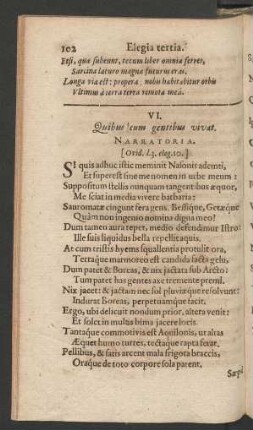 102 Elegia tertia.
Etsi, quæ subeunt, tecum liber omnia ferres,
Sarcina laturo magna futurus eras.
Longa via est: propera: nobis habitabitur orbis
Vltimus à terra terra remota meâ.
VI.
Quibus cum gentibus vivat.
NARRATORIA.
[Ovid. l. 3. eleg. 10.]
SI quis adhuc istic meminit Nasonis ademti,
Et superest sine me nomen in urbe meum:
Suppositum stellis nunquam tangentibus æquor,
Me sciat in media vivere barbaria:
Sauromatæ cingunt fera gens, Bessique, Getæque
Quàm non ingenio nomina digna meo!
Dum tamen aura tepet, medio defendimur Istro:
Ille suis liquidus bella repellit aquis.
At cum tristis hyems squallentia protulit ora,
Terraque marmoreo est candida facta gelu,
Dum patet & Boreas, & nix jactata sub Arcto:
Tum patet has gentes axe tremente premi.
Nix jacet: & jactam nec sol pluviæque resolvunt:
Indurat Boreas, perpetuamque facit.
Ergo, ubi delicuit nondum prior, altera venit:
Et solet in multis bima jacere locis.
Tantaque commotivis est Aquilonis, ut altas
Æquet humo turres, tectaque rapta ferat.
Pellibus, & sutis arcent mala frigora braccis,
Oraque de toto corpore sola patent.
Sæpè